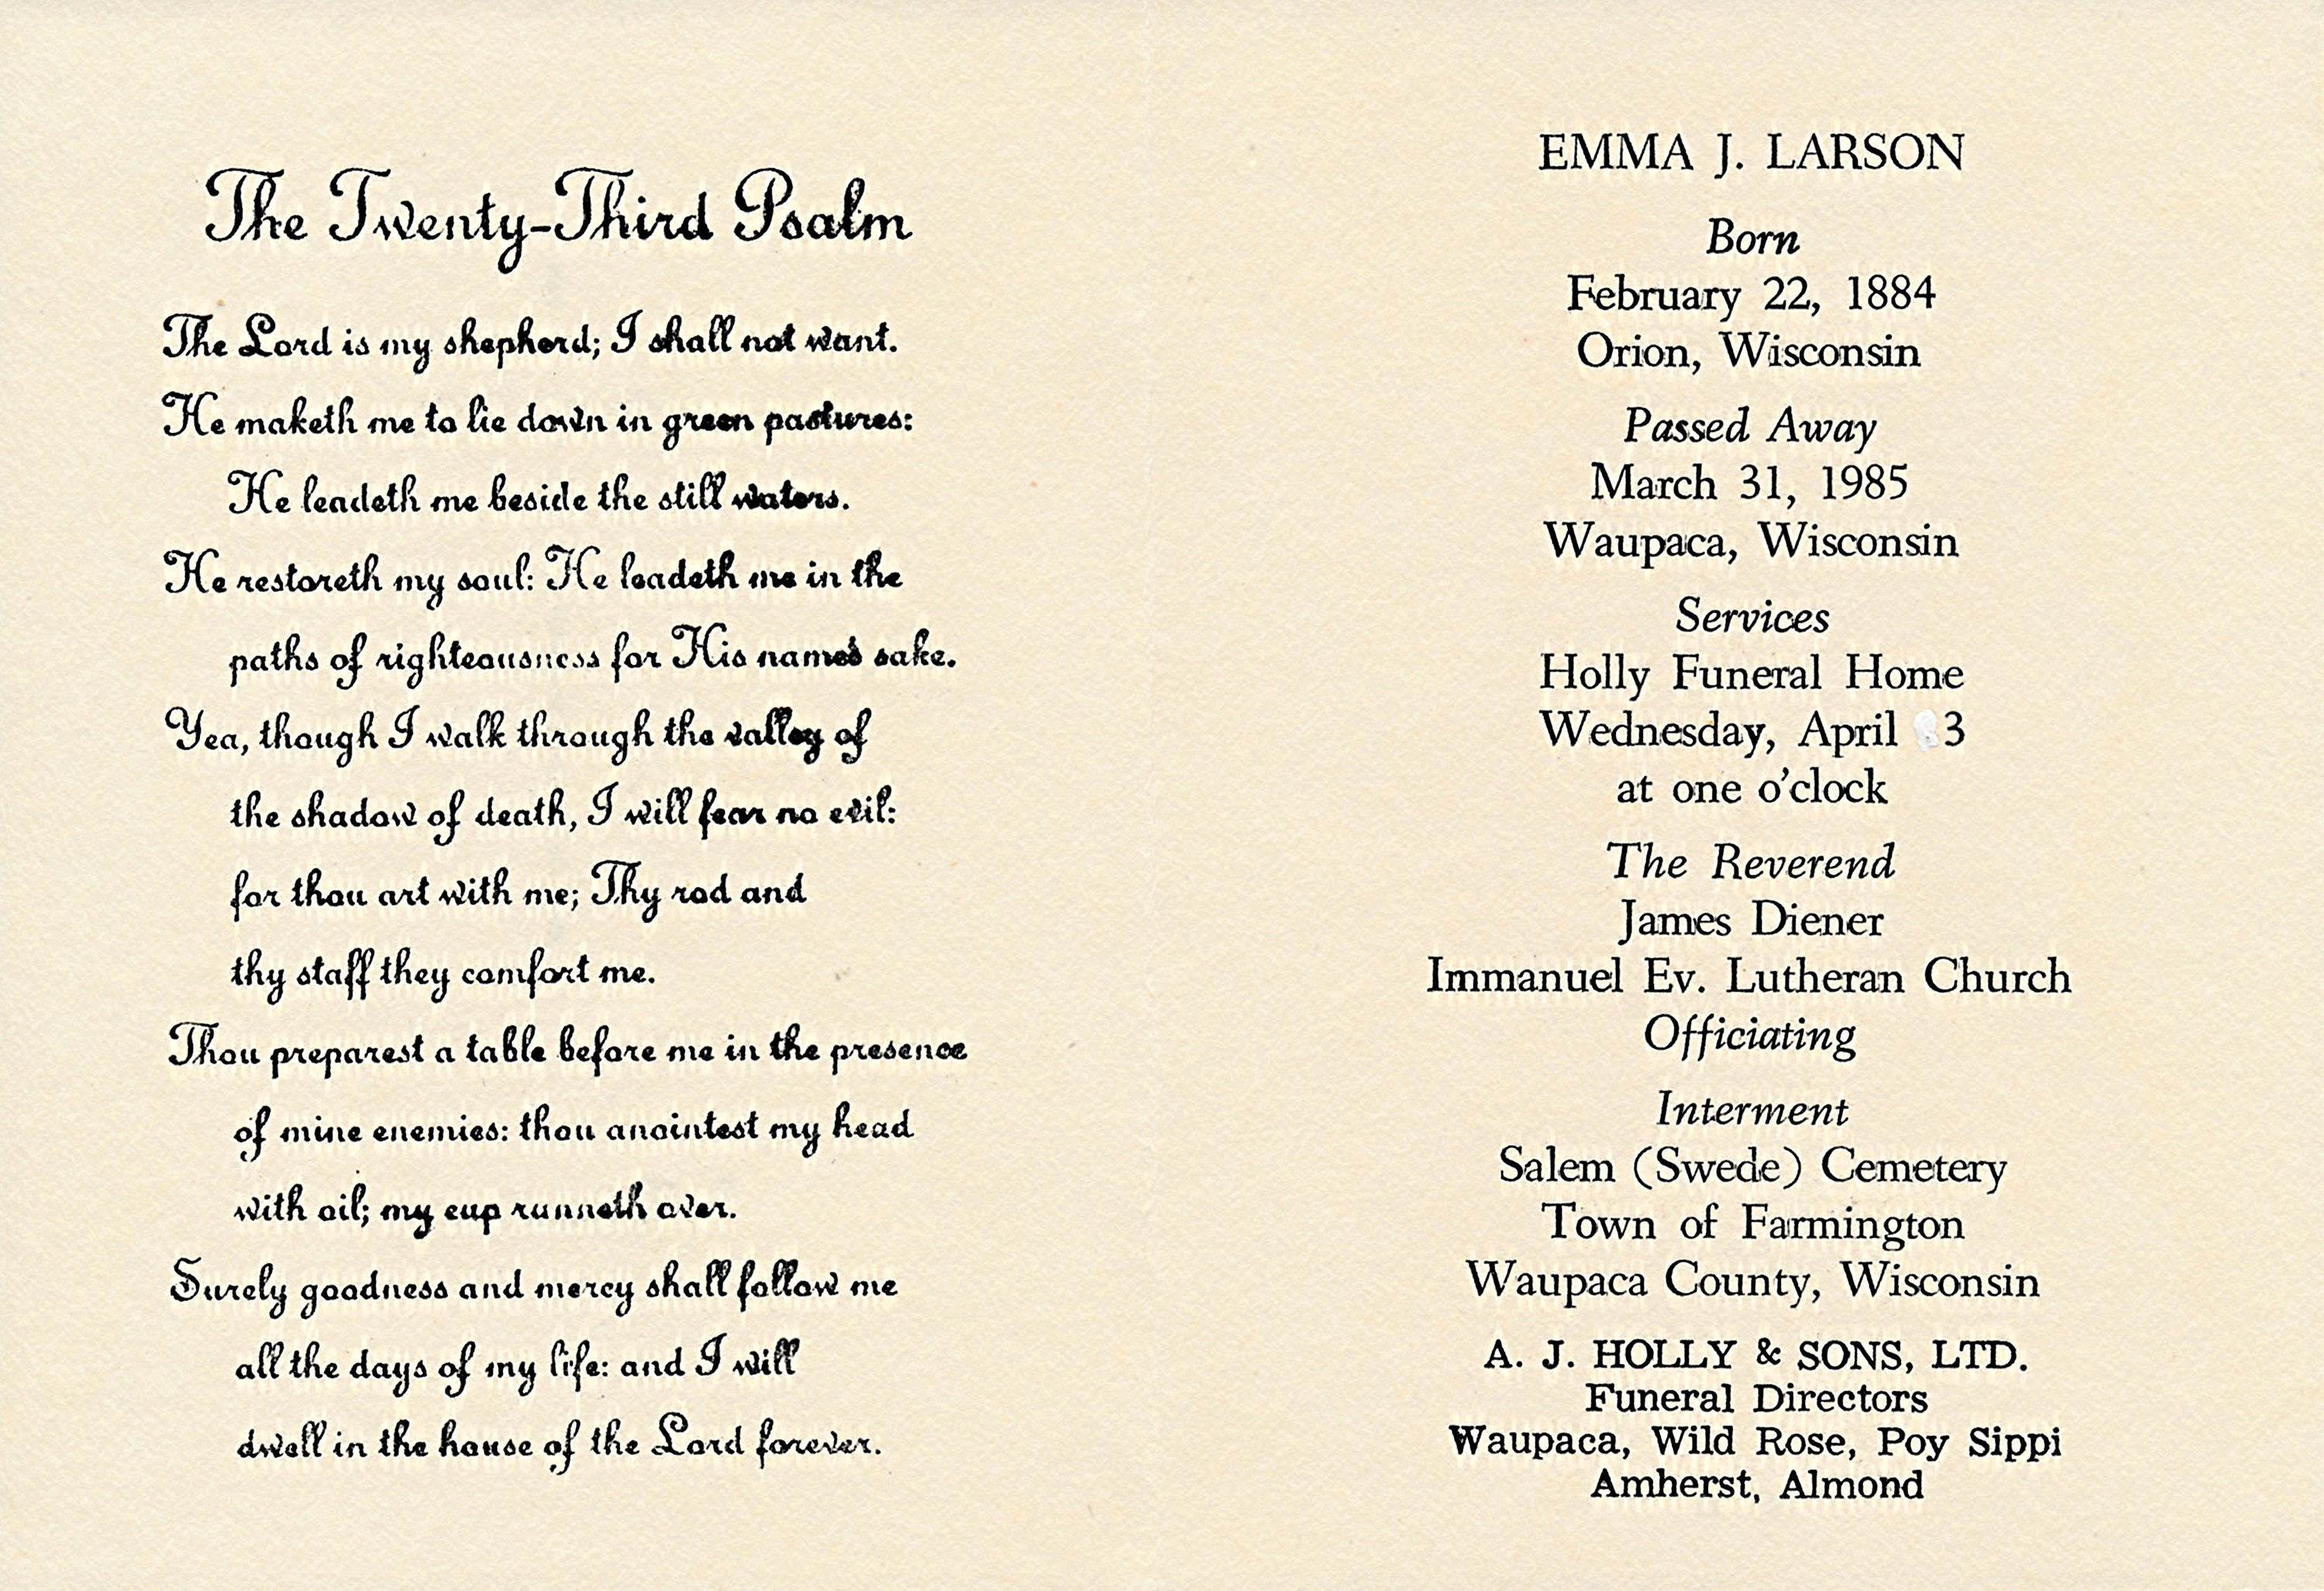 The Twenty-Third Psalm
The Lord is my shepherd; I shall not want.
He maketh me to lie down in green pastures:
He leadeth me beside the still waters.
He restoreth my soul: He leadeth me in the
paths of righteousness for His name's sake.
Yea, though I walk through the valley of
the shadow of death, I will fear no evil:
for thou art with me; Thy rod and
thy staff they comfort me.
Thou preparest a table before me in the presence
of mine enemies: thou anointest my head
with oil; my cup runneth over.
Surely goodness and mercy shall follow me
all the days of my life: and I will
dwell in the house of the Lord forever.
EMMA J. LARSON
Born
February 22, 1884
Orion, Wisconsin
Passed Away
March 31, 1985
Waupaca, Wisconsin
Services
Holly Funeral Home
Wednesday, April 3
at one o'clock
The Reverend
James Diener
Immanuel Ev. Lutheran Church
Officiating
Interment
Salem (Swede) Cemetery
Town of Farmington
Waupaca County, Wisconsin
A. J. HOLLY & SONS, LTD.
Funeral Directors
Waupaca, Wild Rose, Poy Sippi
Amherst, Almond